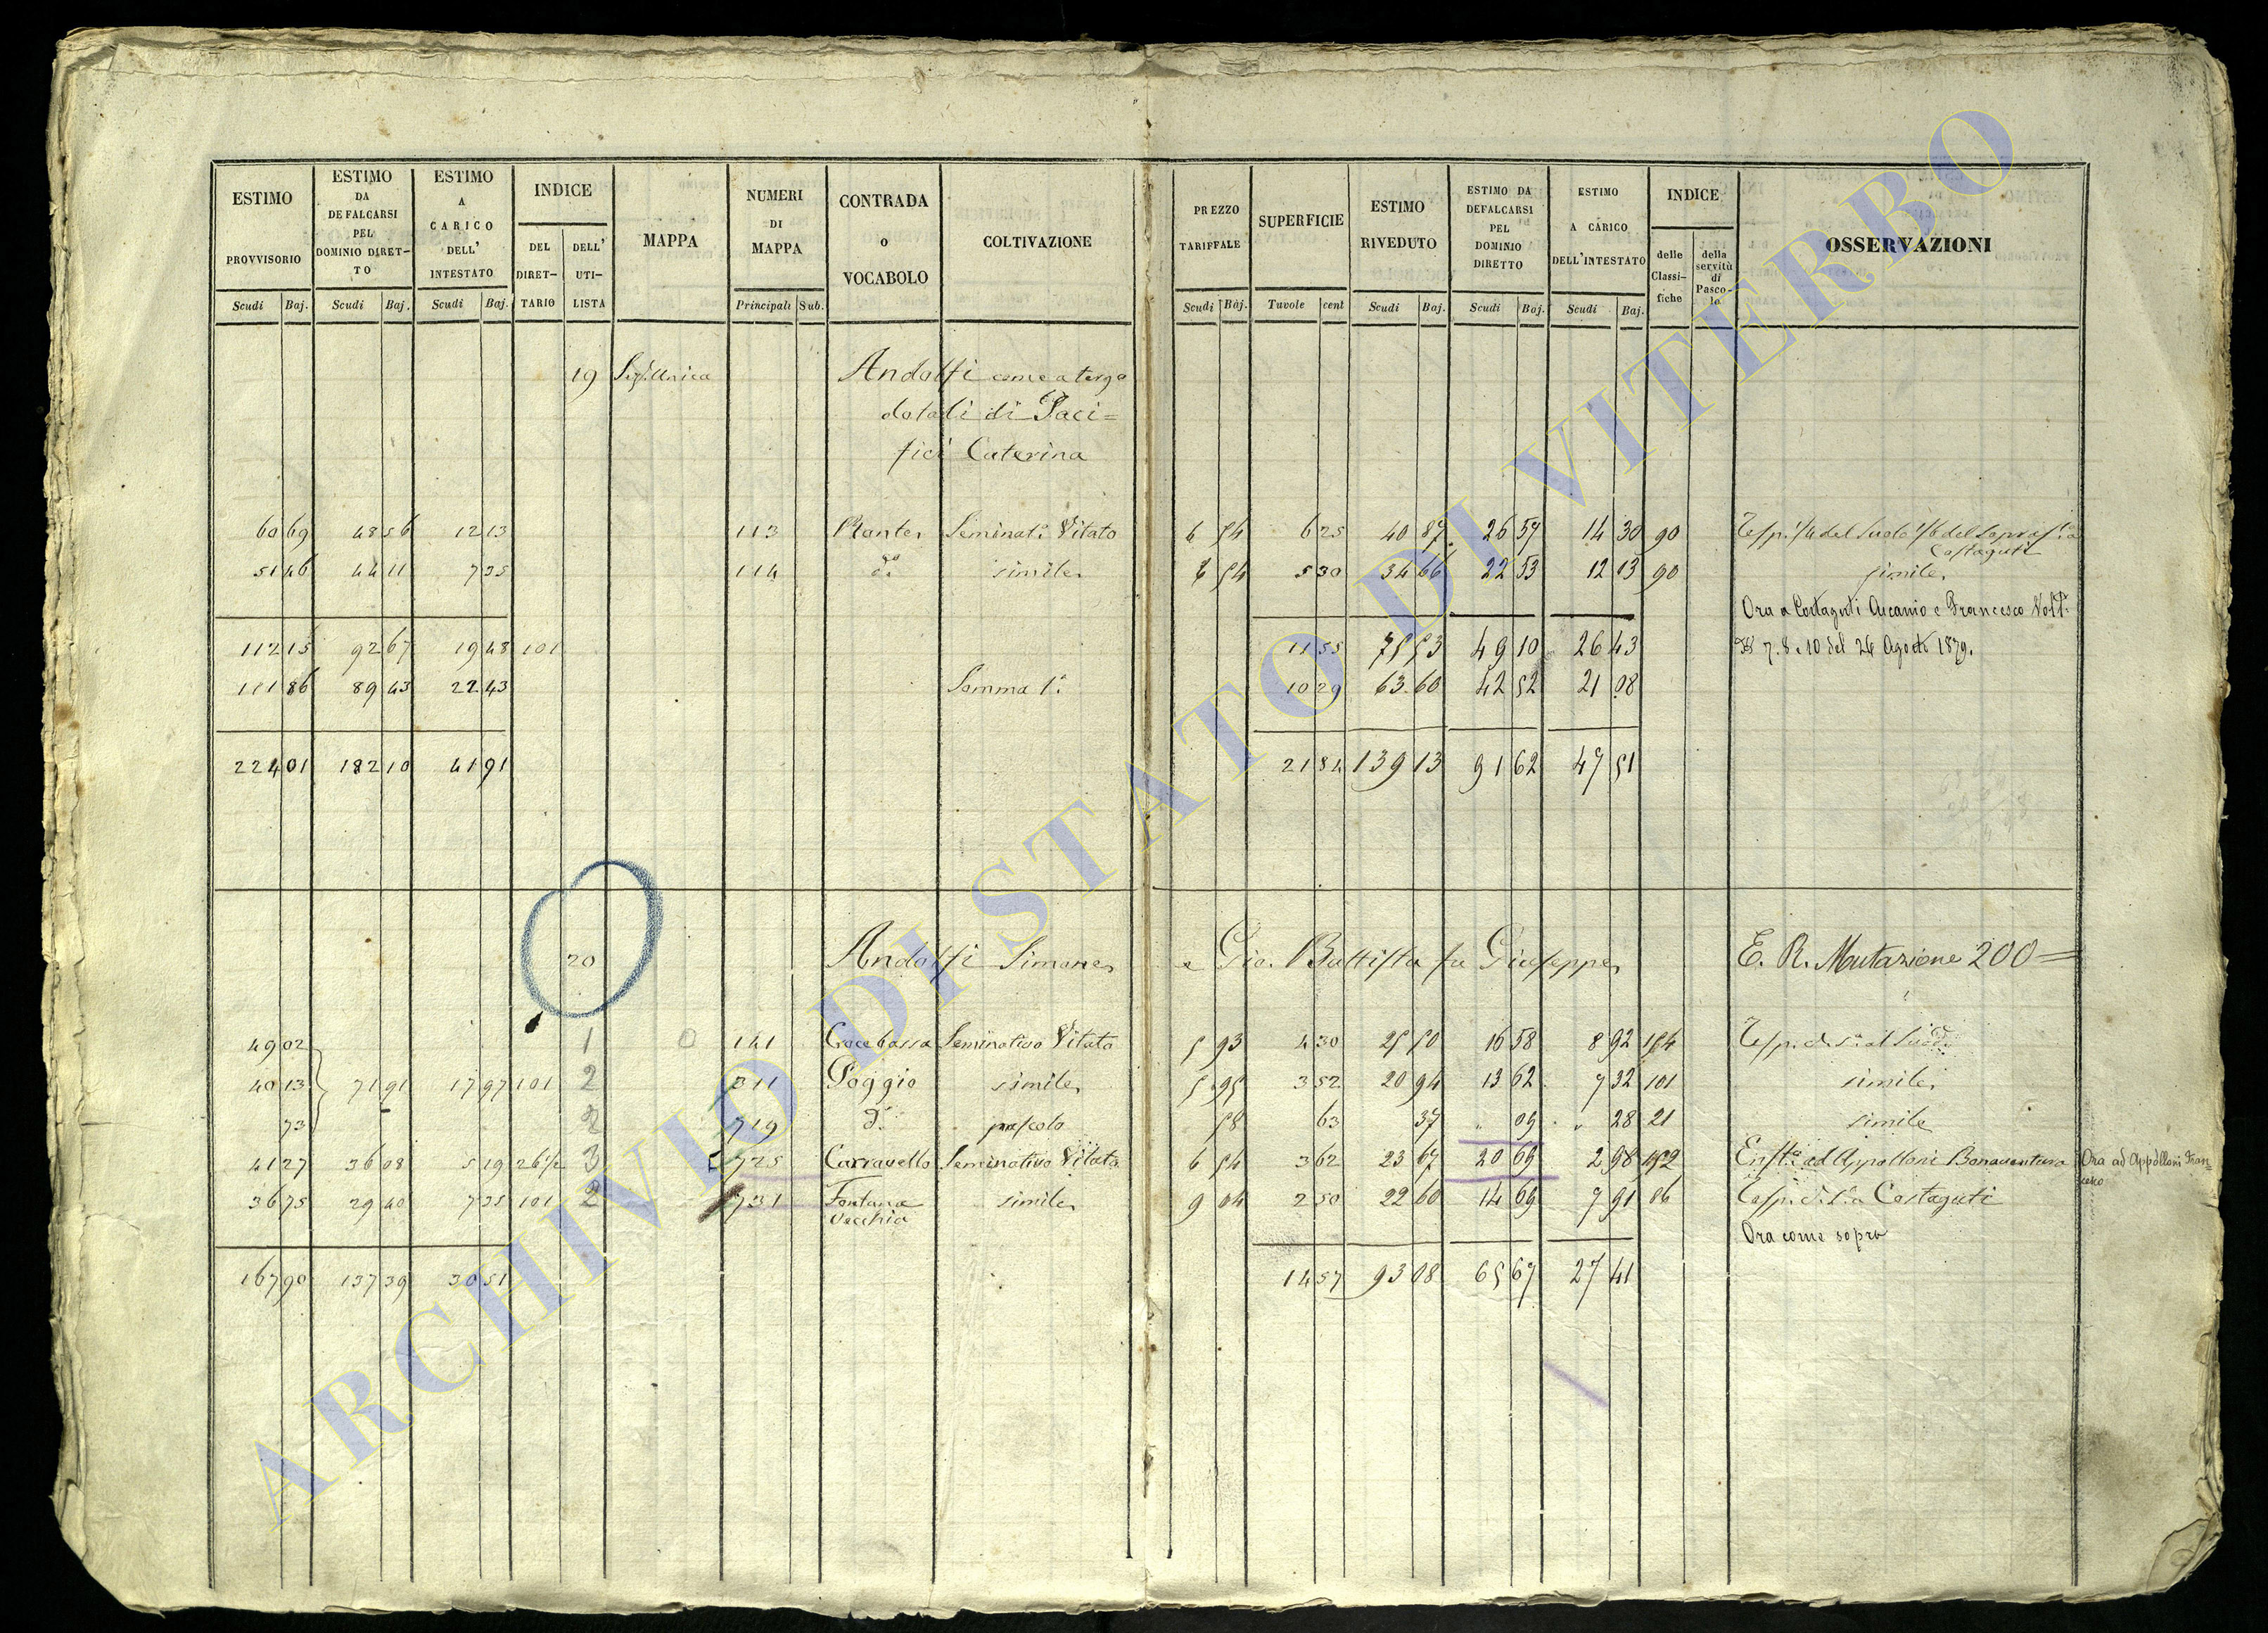 ESTIMO PROVVISORIO Scudi Baj.
ESTIMO DA DEFALCARSI PEL DOMINIO DIRET-TO Scudi Baj.
ESTIMO A CARICO DELL' INTESTATO Scudi Baj.
INDICE DEL DIRET-TARIO DELL' UTI-LISTA
MAPPA
NUMERI DI MAPPA Principali Sub.
CONTRADA O VOCABOLO
COLTIVAZIONE
PREZZO TARIFFALE Scudi Baj.
SUPERFICIE Tavole cent
ESTIMO RIVEDUTO Scudi Baj.
ESTIMO DA DEFALCARSI PEL DOMINIO DIRETTO Scudi Baj.
ESTIMO A CARICO DELL'INTESTATO Scudi Baj.
INDICE delle Classi-fiche della servitù di Pasco-lo
OSSERVAZIONI
19 Unica Andolfi come a tergo
dotali di Paci=
fici Caterina
60 69 48 56 12 13 113 Piante Seminat. Vitato 6 54 6 25 40 87 26 57 14 30 90
Costaguti
51 46 44 11 7 35 114 d.o simile 6 54 5 30 34 66 22 53 12 13 90 simile
Ora a Costaguti Ascanio e Francesco
112 15 92 67 19 48 101 11 55 75 53 49 10 26 43 7. 8 e 10 del 26 Agosto 1879.
111 86 89 43 22 43 Somma 1.a 10 29 63 60 42 52 21 08
224 01 182 10 41 91 21 84 139 13 91 62 47 51
20 Andolfi Simone e Gio. Battista fu Giuseppe E. R. Mutazione 200=
49 02 1 141 Crocebassa Seminativo Vitato 5 93 4 30 25 50 16 58 8 92 154
40 13 71 91 17 97 101 2 311 Poggio simile 5 95 3 52 20 94 13 62 7 32 101 simile
73 2 719 d.o pascolo 58 63 37 " 09 " 28 21 simile
41 27 36 08 5 19 26 1/2 3 725 Carravello Seminativo Vitato 6 54 3 62 23 67 20 69 2 98 152 Enft.a ad Appolloni Bonaventura Ora ad Appolloni Fran-
cesco
36 75 29 40 7 35 101 2 731 Fontana simile 9 04 2 50 22 60 14 69 7 91 86 Costaguti
Vecchia
Ora come sopra
167 90 137 39 30 51 14 57 93 08 65 67 27 41
ARCHIVIO DI STATO DI VITERBO